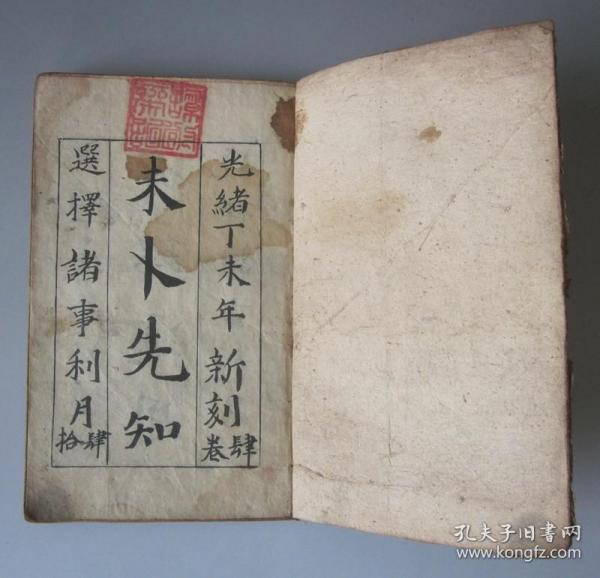 光緒丁未年新刻肆卷
未卜先知
選擇諸事利月肆拾
孔夫子旧书网
www.kongfz.com